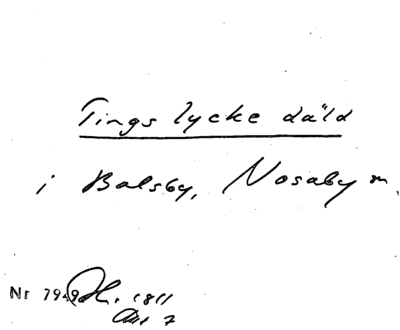 Tings lycke däld
i Balsby, Nosaby m.
Nr 7949
1811
7